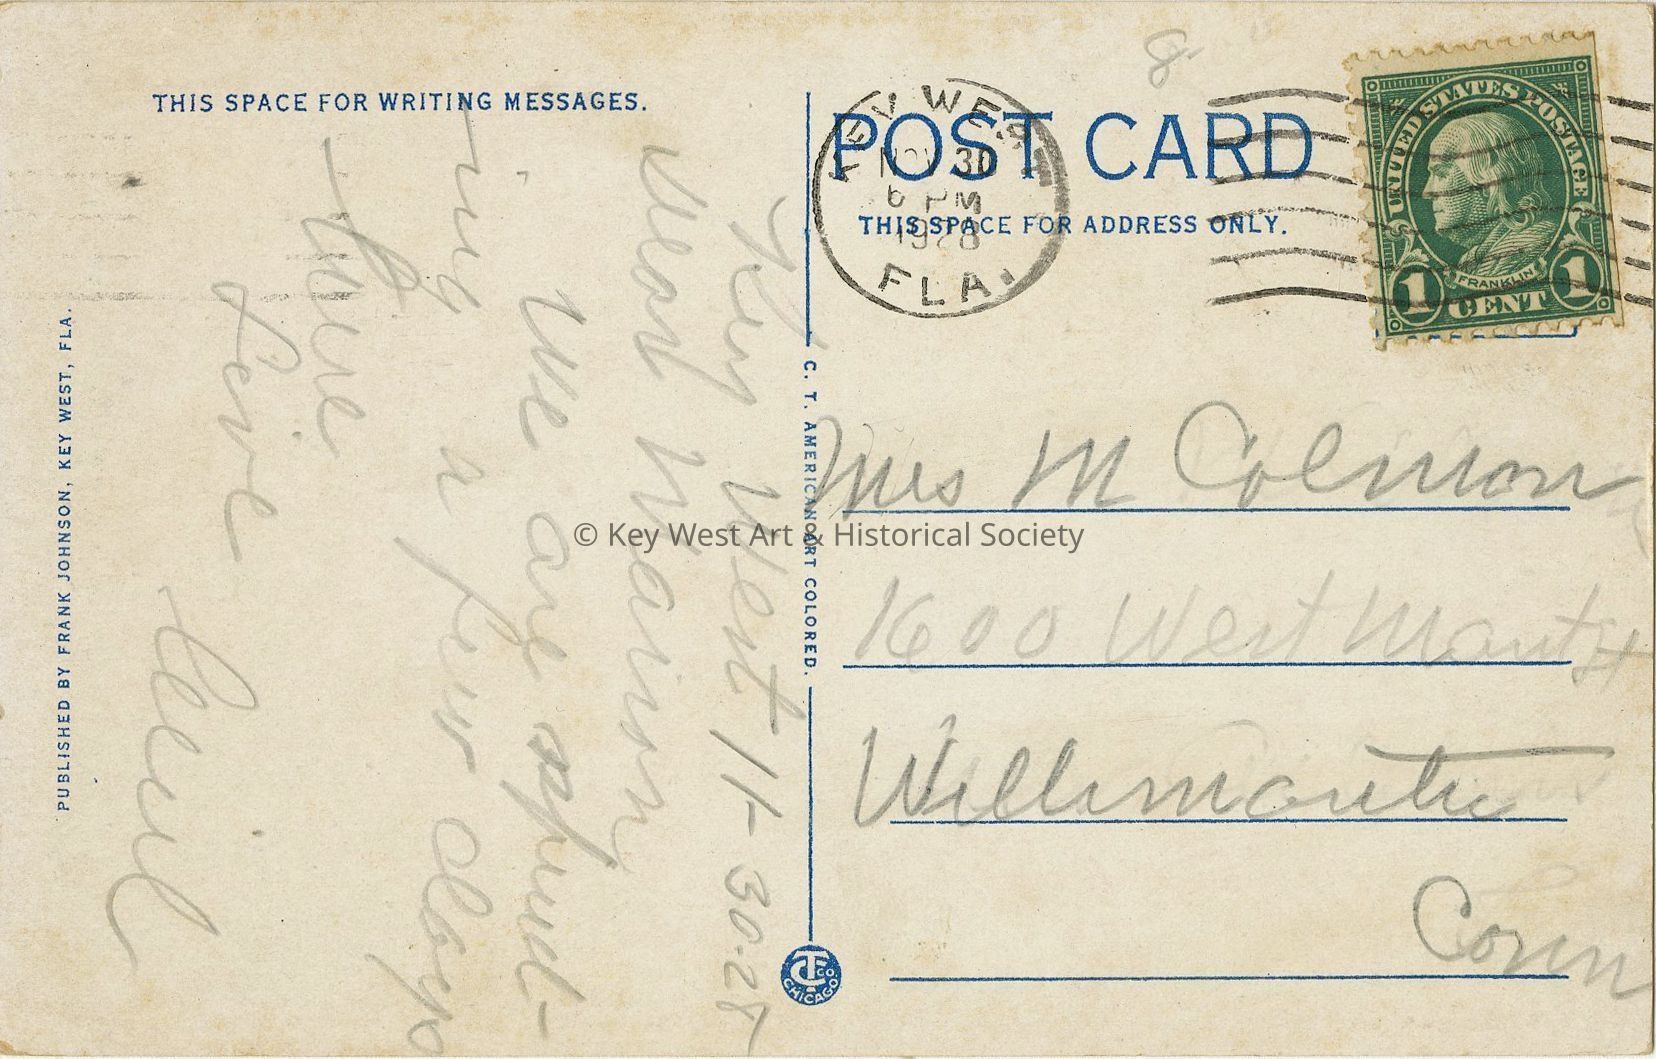 THIS SPACE FOR WRITING MESSAGES.
POST CARD
THIS SPACE FOR ADDRESS ONLY.
KEY WEST
NOV 30
6 PM
1928
FLA.
UNITED STATES POSTAGE
FRANKLIN
1 CENT 1
Key West 11-30-28
Dear
We are spend-
ing a few days
here
Love
Mrs M Colman
1600 West Main St
Willimantic
Conn
C. T. AMERICAN ART COLORED.
CHICAGO.
PUBLISHED BY FRANK JOHNSON, KEY WEST, FLA.
© Key West Art & Historical Society